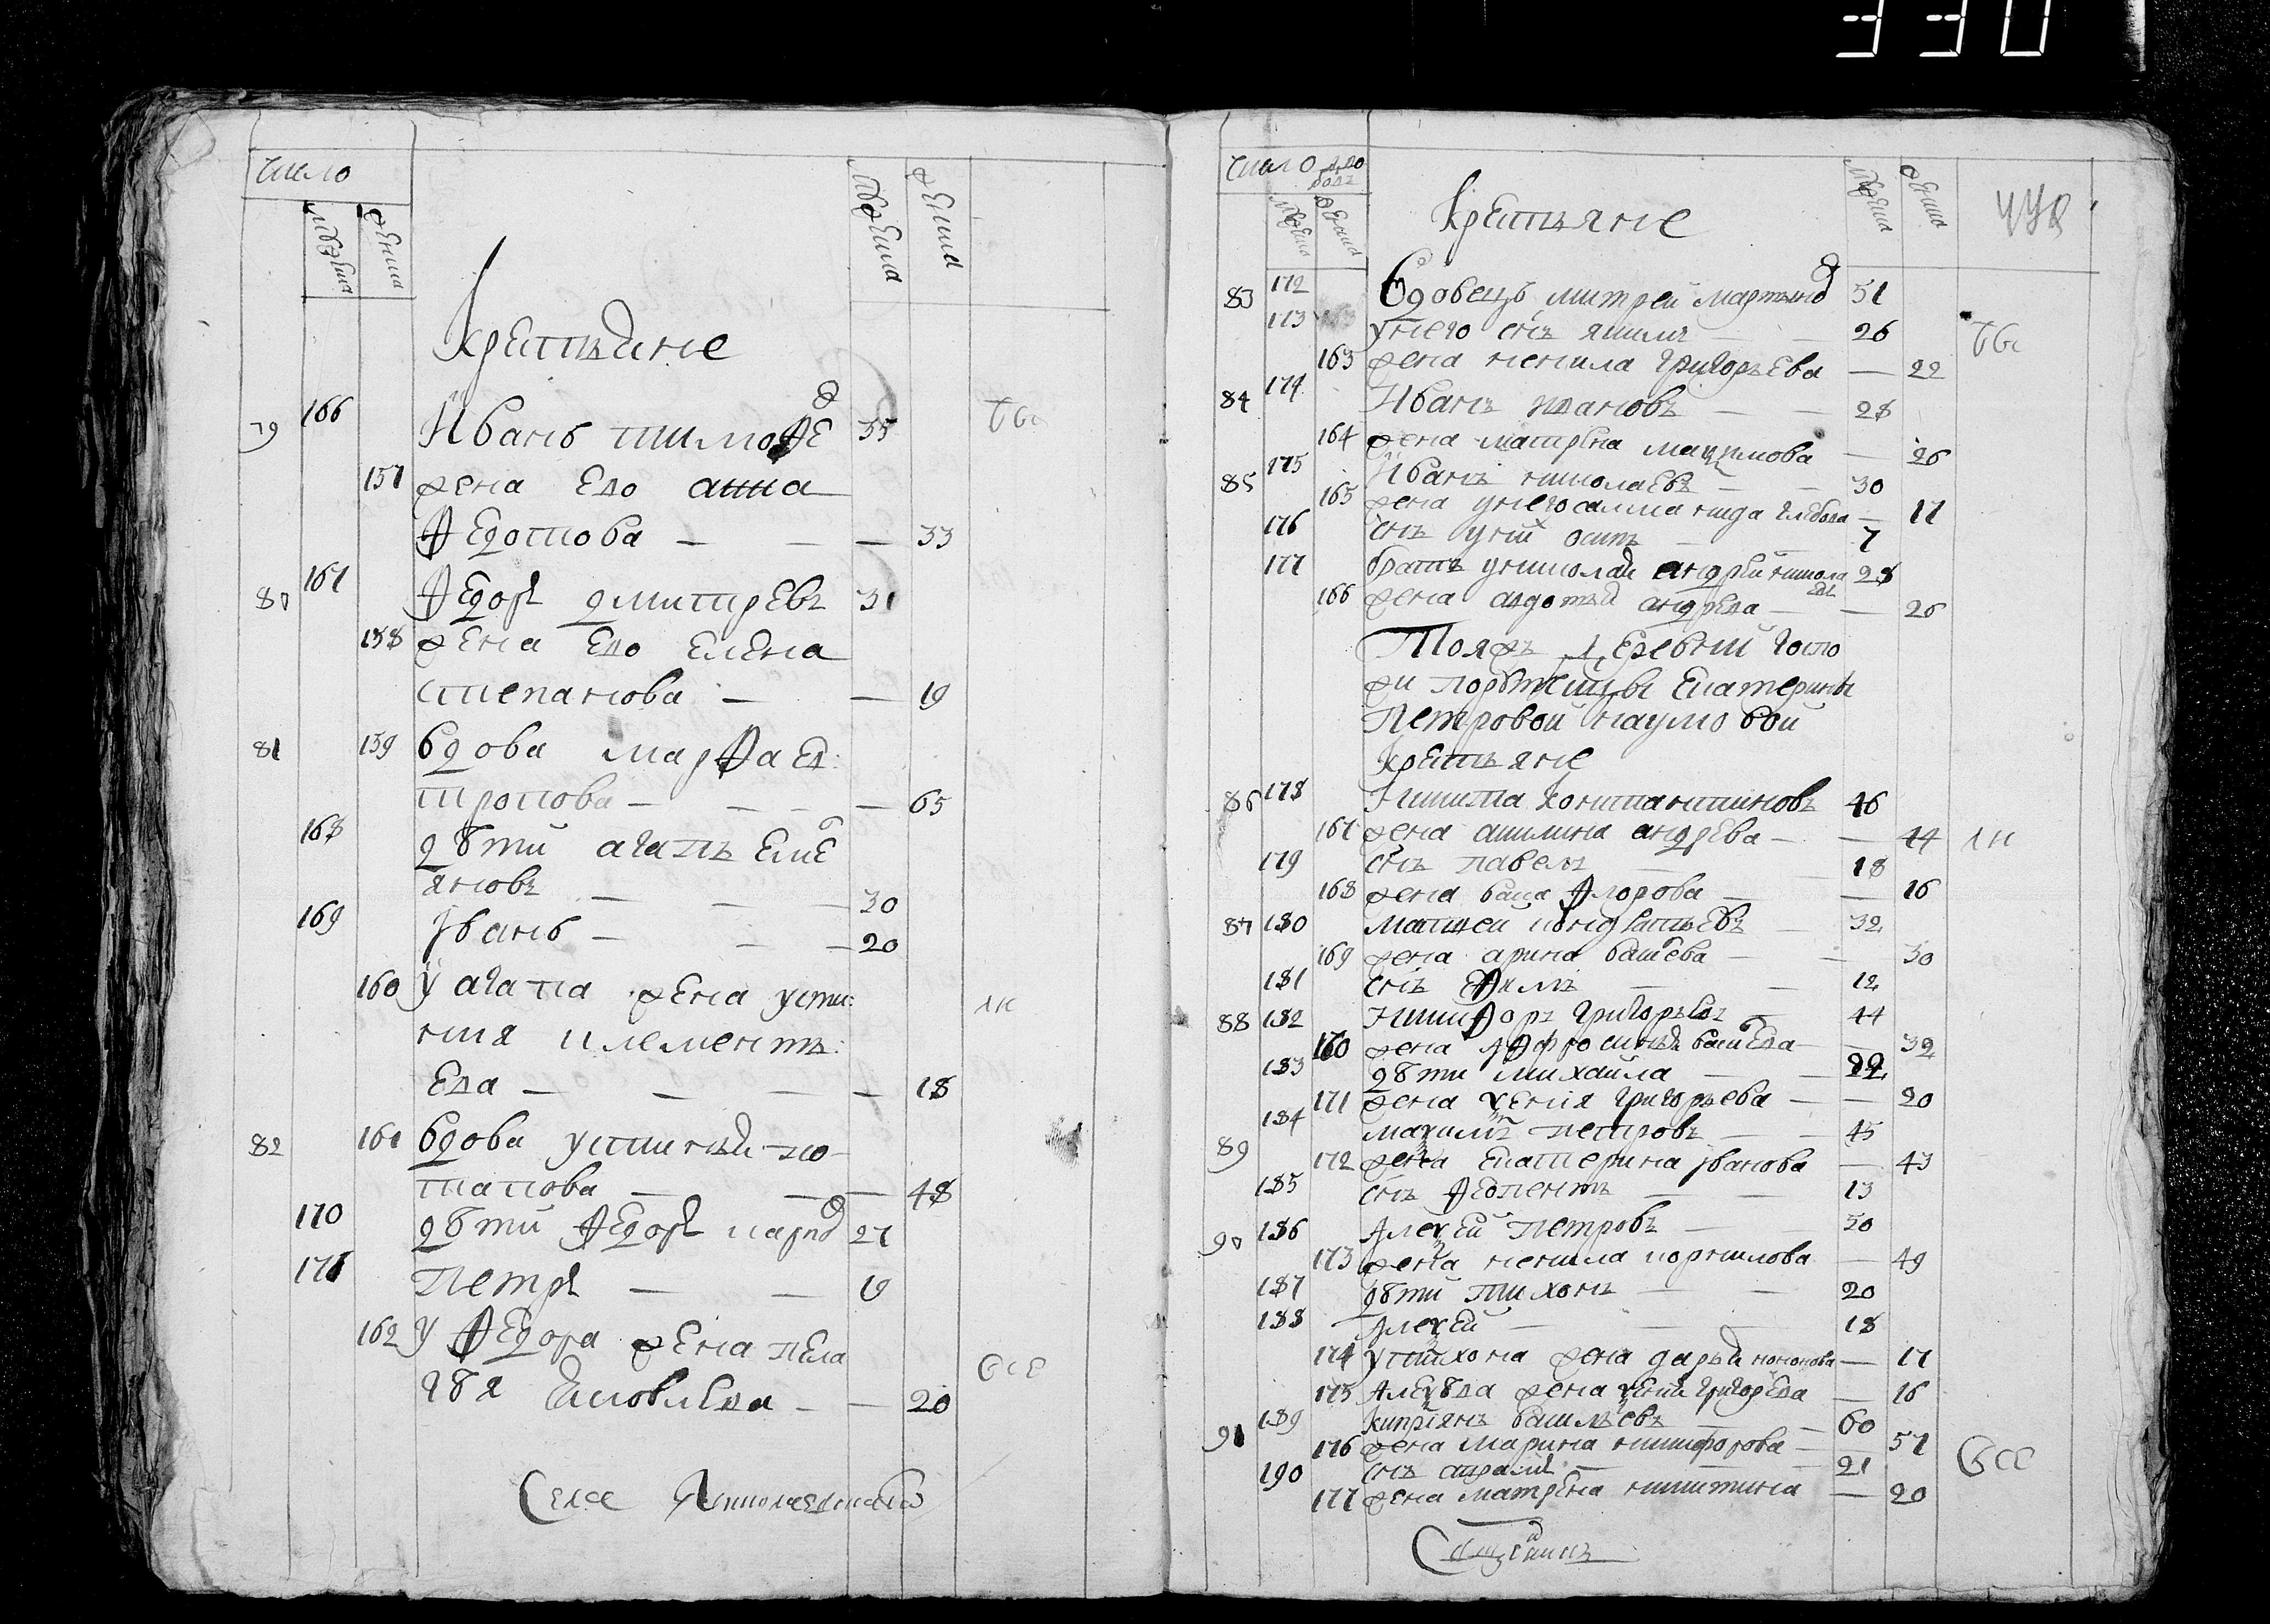 330
число
мужеска
женска
мужеска
женска
крестьяне
79 166 Иванъ тимофе 35
157 жена ево анна
федотова — — — 33
80 167 федоръ дмитревъ 31
158 жена ево елена
степанова — — 19
81 159 вдова марфа ев:
тропова — — — — 65
168 дѣти агапъ еме
яновъ — — — 30
169 Иванъ — — — 20
160 у агапа жена усти:
ния клементь:
ева — — — — 18
82 161 вдова устинья по
тапова — — — 48
170 дѣти федоръ карпо 27
171 петръ — — 19
162 у федора жена пела
гѣя яковлева — — 20
все
Села Николаевскаго
число дво
ровъ
мужеска
женска
Крестьяне
мужеска
женска
83 172 Вдовецъ митрей мартыно 51
173 у него снъ яким — — 26
163 жена ненила григорьева — 22
84 174 Иванъ ивановъ — — 28
164 жена матрена мазимова — 26
85 175 Иванъ николаевъ — — 30
165 жена у него саламанида глебова — 17
176 снъ у них осипъ — — 7
177 братъ у николая андрей никола 28
евъ
166 жена авдотья андреева — — 26
Тояжъ деревни госпо
жи порутчицы Екатерины
Петровой наумовой
крестьяне
86 178 Никита константиновъ 46
167 жена акилина андрева — — 44
179 снъ павелъ — — 18
168 жена васа флорова — — 16
87 180 матвей кондратьевъ — 32
169 жена арина васиева — — 30
181 снъ ефимъ — — 12
88 182 Никифоръ григорьевъ — 44
160 жена афросинья васиева — 32
183 дѣти михаила — — 22
171 жена ксения григорьева — — 20
89 184 максимъ петровъ — — 45
172 жена екатерина иванова — 43
185 снъ ферпентъ — — 13
90 186 Алексей Петровъ — 50
173 жена ненила корнилова — 49
187 дѣти тихонъ — — 20
188 Алексей — — 18
174 у тихона жена дарья кононова — 17
175 Алексѣва жена ксения григорева — 16
91 189 киприянъ васильевъ — — 60
176 жена марина никифорова — — 57
190 снъ авраамъ — — 21
177 жена матрена никитина — 20
все